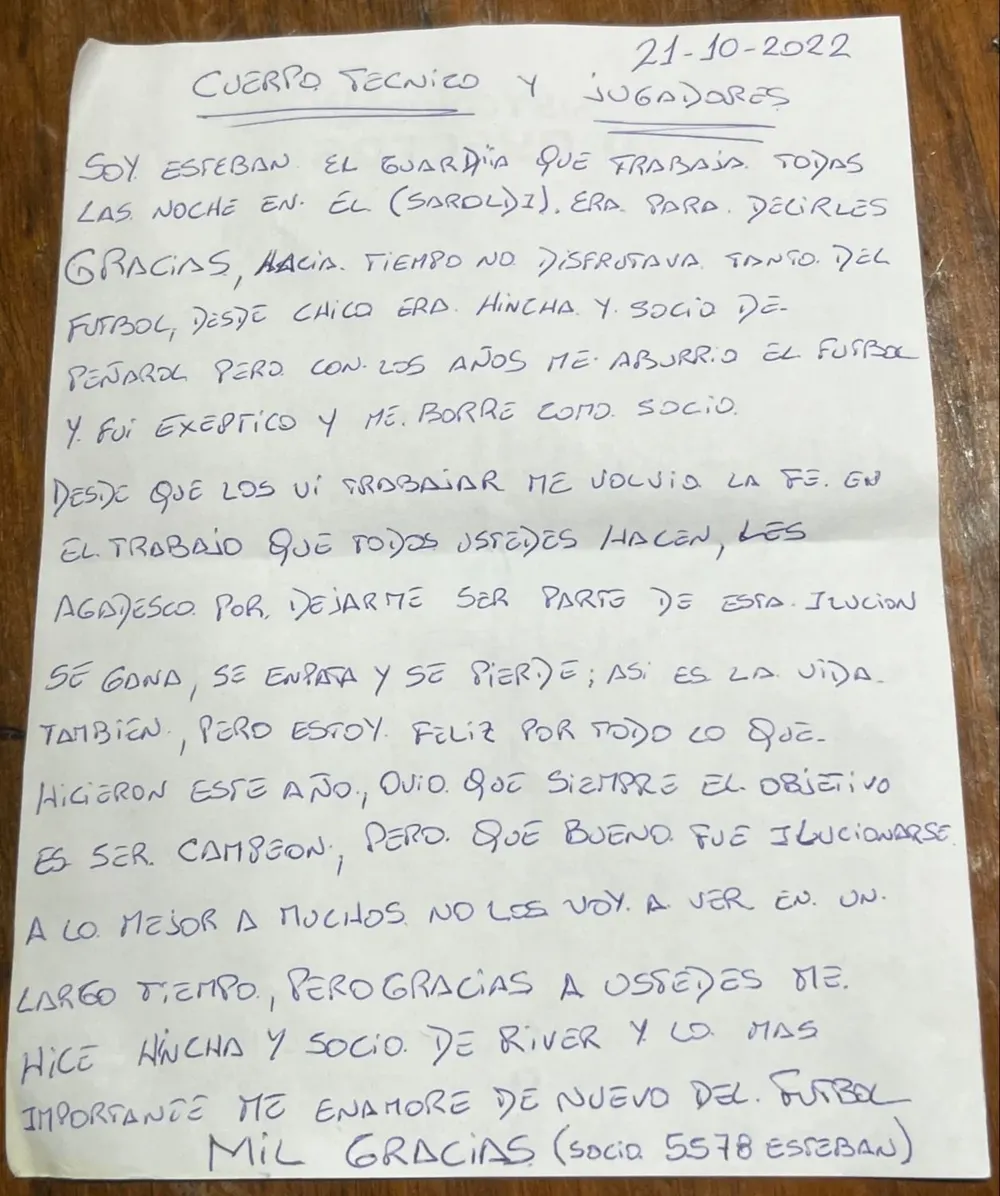 21-10-2022
CUERPO TECNICO Y JUGADORES
SOY ESTEBAN EL GUARDIA QUE TRABAJA TODAS
LAS NOCHE EN. EL (SAROLDI). ERA PARA. DECIRLES
GRACIAS, HACIA. TIEMPO NO DISFRUTAVA TANTO. DEL
FUTBOL, DESDE CHICO ERA. HINCHA. Y. SOCIO DE-
PEÑAROL PERO. CON. LOS AÑOS ME. ABURRIO EL FUTBOL
Y. FUI EXEPTICO Y ME. BORRE COMO. SOCIO.
DESDE QUE LOS VI TRABAJAR ME VOLVIO LA FE. EN
EL TRABAJO QUE TODOS USTEDES HACEN, LES
AGADESCO. POR. DEJARME SER PARTE DE ESTA. ILUCION
SE GANA, SE ENPATA Y SE PIERDE; ASI ES LA VIDA-
TAMBIEN., PERO ESTOY. FELIZ POR TODO LO QUE-
HICIERON ESTE AÑO., OVIO. QUE SIEMPRE EL OBJETIVO
ES SER. CAMPEON., PERO. QUE BUENO. FUE ILUCIONARSE.
A LO MEJOR A MUCHOS NO LOS VOY. A VER EN. UN.
LARGO TIEMPO., PERO GRACIAS A USTEDES ME.
HICE HINCHA Y SOCIO. DE RIVER Y LO MAS
IMPORTANTE ME ENAMORE DE NUEVO DEL. FUTBOL
MIL GRACIAS (SOCIO 5578 ESTEBAN)